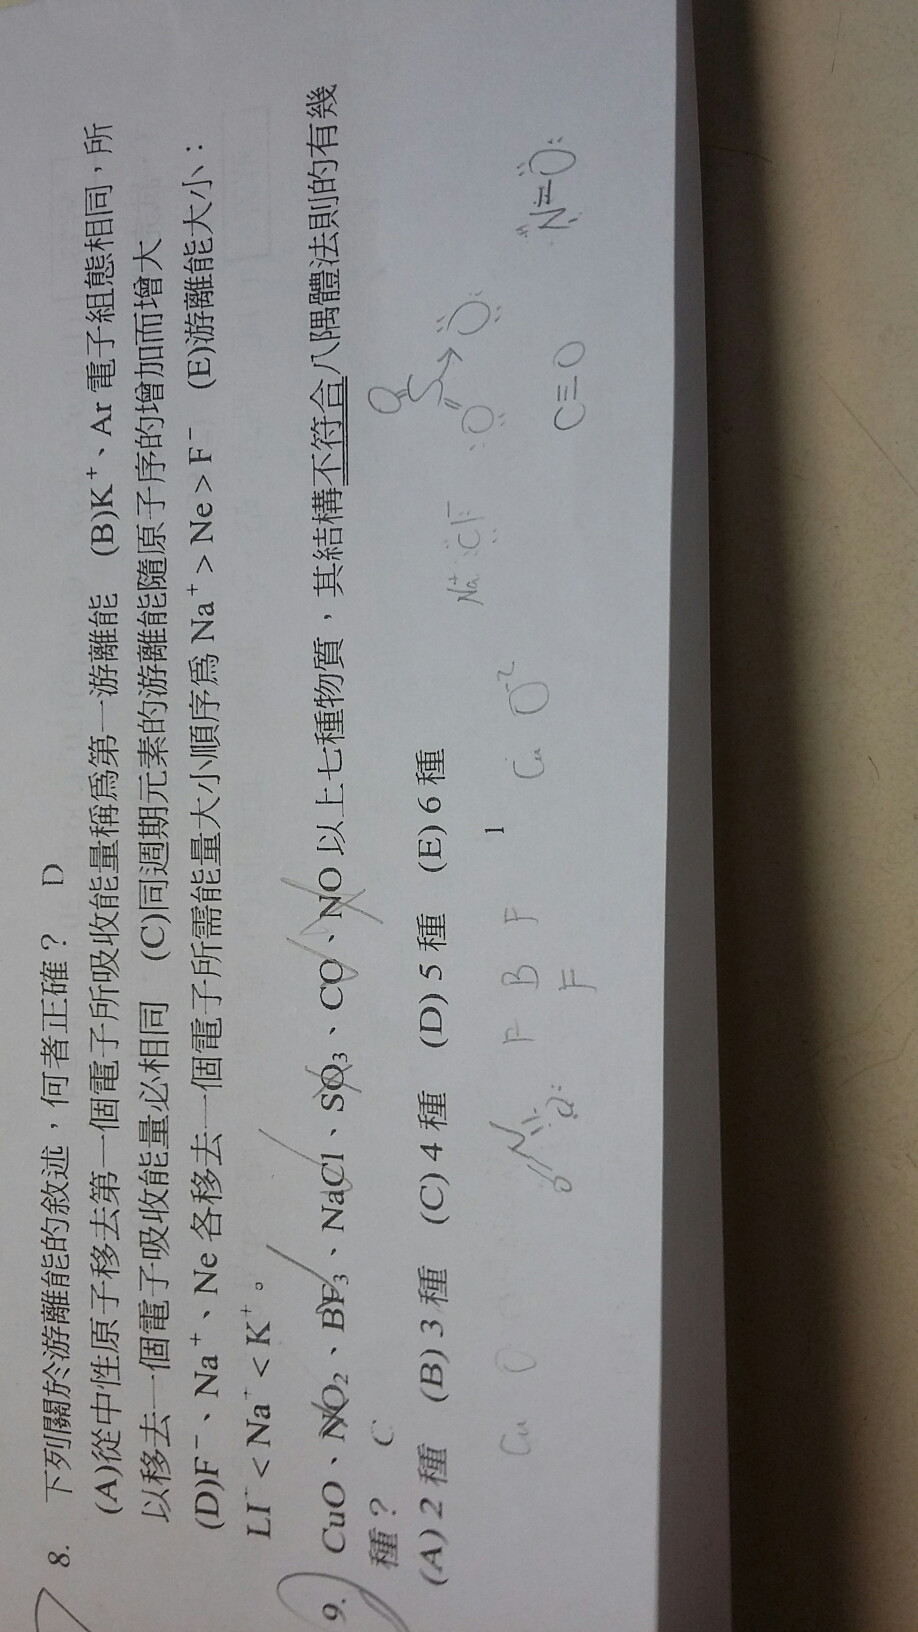 8. 下列關於游離能的敘述，何者正確？ D
(A)從中性原子移去第一個電子所吸收能量稱爲第一游離能 (B)K⁺、Ar 電子組態相同，所
以移去一個電子吸收能量必相同 (C)同週期元素的游離能隨原子序的增加而增大
(D)F⁻、Na⁺、Ne 各移去一個電子所需能量大小順序爲 Na⁺ > Ne > F⁻ (E)游離能大小：
LI⁻ < Na⁺ < K⁺。
9. CuO、NO₂、BF₃、NaCl、SO₃、CO、NO 以上七種物質，其結構不符合八隅體法則的有幾
種？ C
(A) 2 種 (B) 3 種 (C) 4 種 (D) 5 種 (E) 6 種
Na⁺ Cl⁻ O S O O
Cu O O N O F B F F 1 Cu O⁻² C≡O N=O